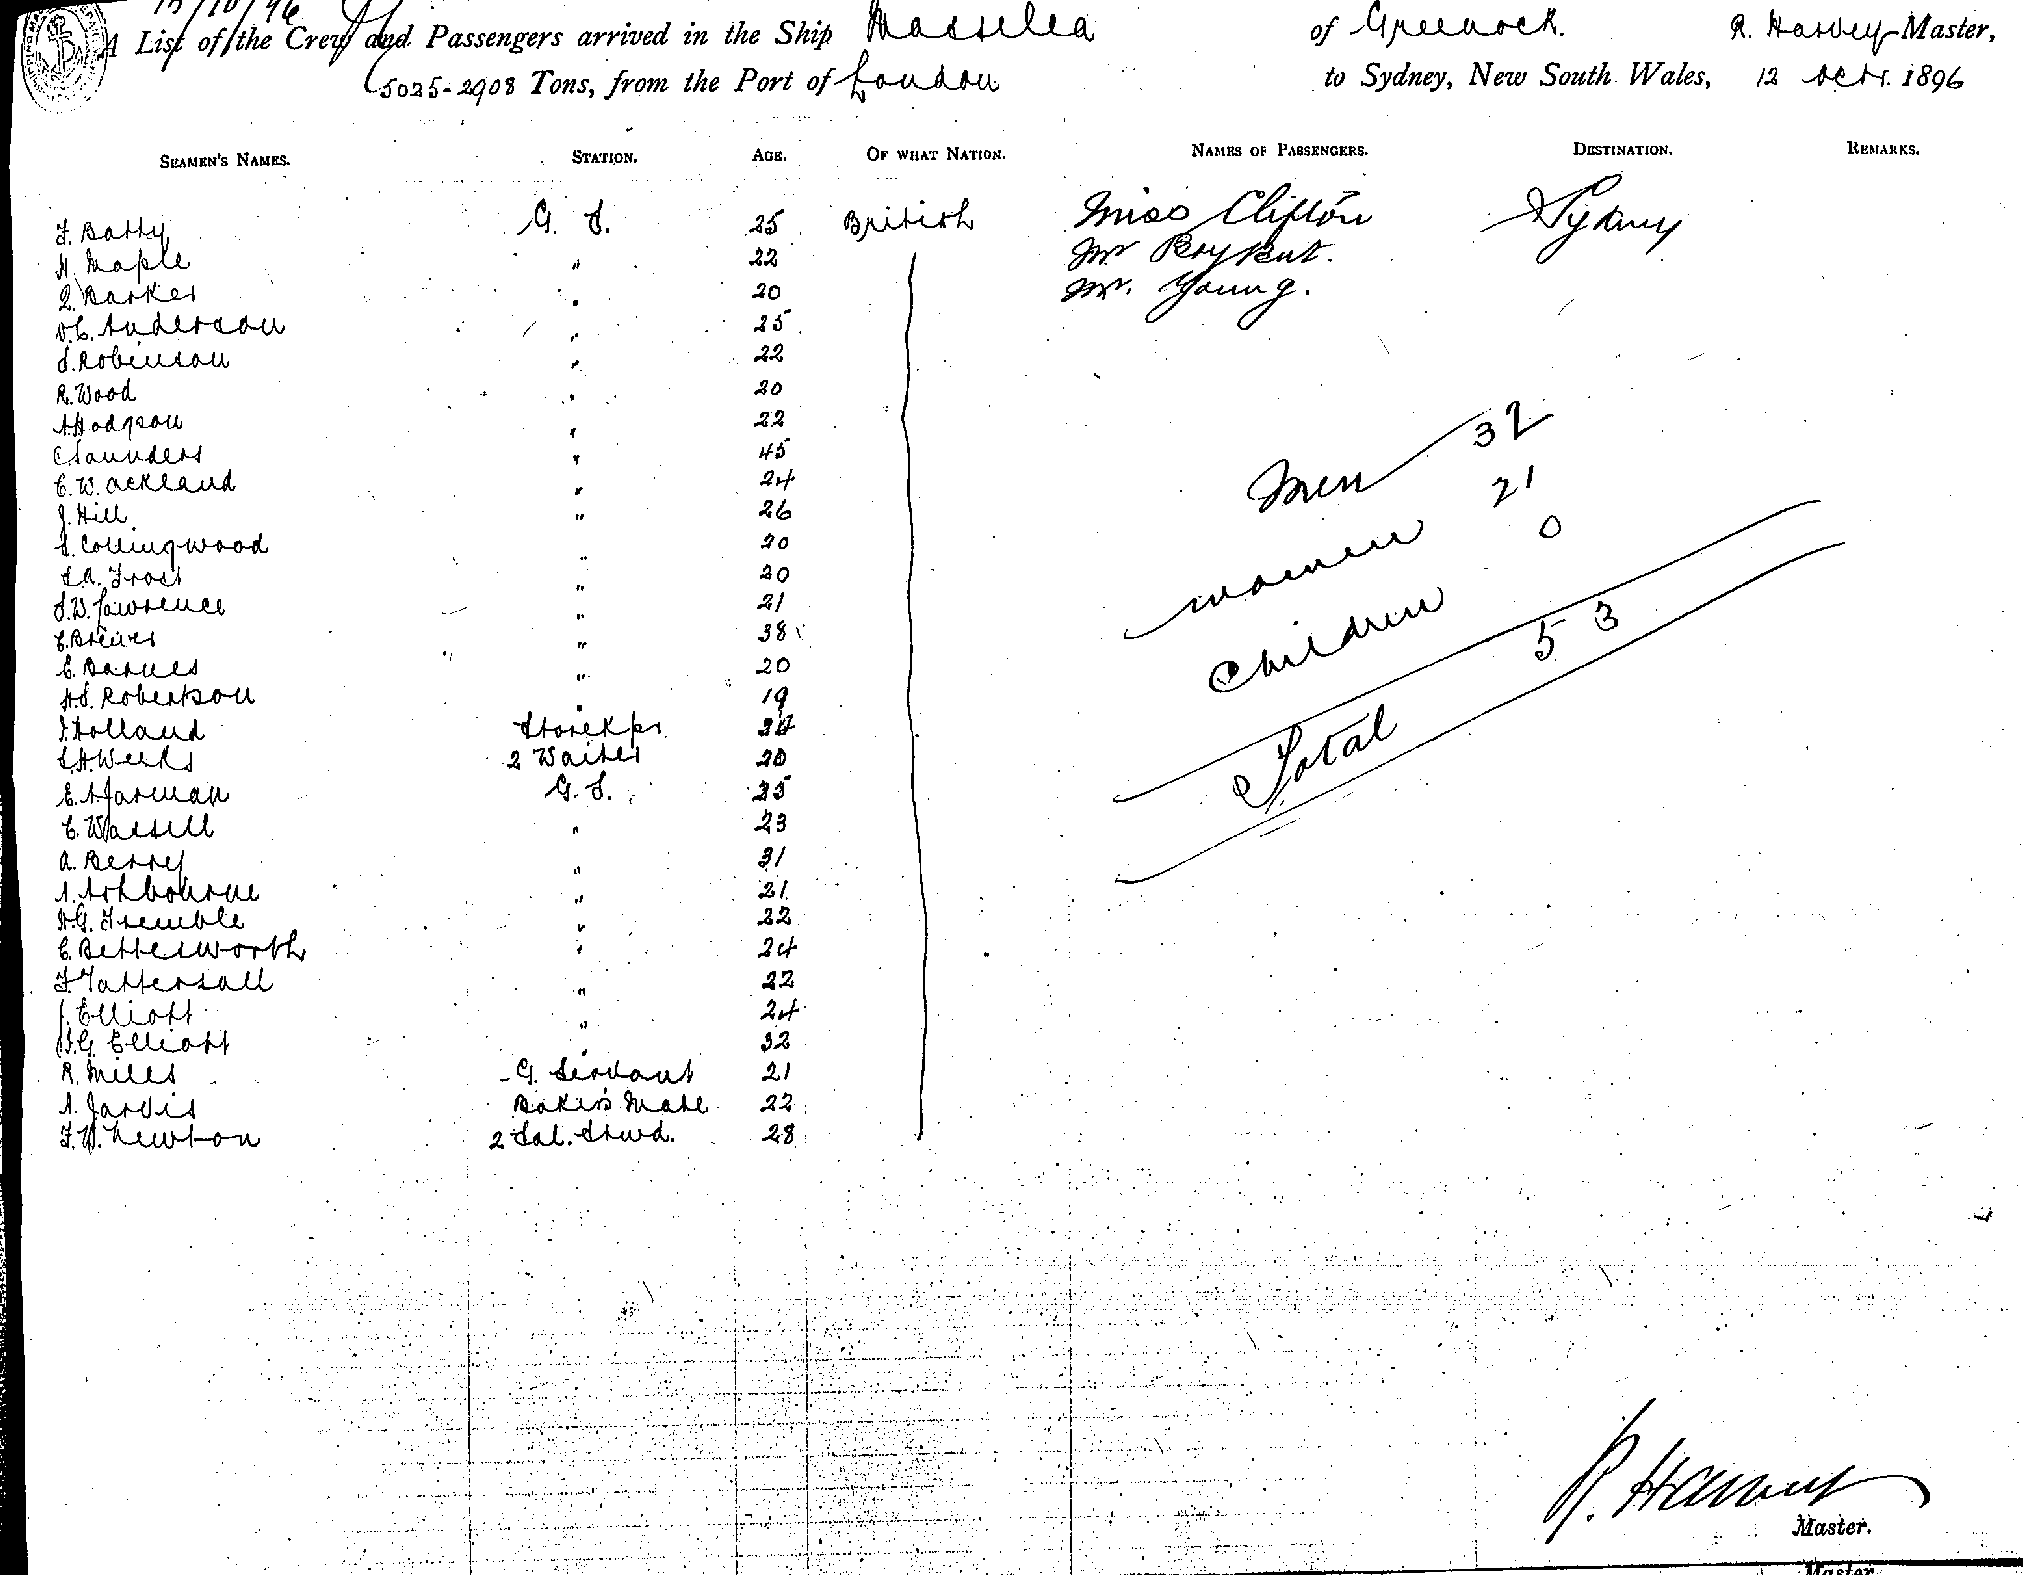 13/10/96
A List of the Crew and Passengers arrived in the Ship Massilia of Greenock. R. Harvey Master,
5025-2908 Tons, from the Port of London to Sydney, New South Wales, 12 Octr. 1896
SEAMEN'S NAMES. STATION. AGE. OF WHAT NATION. NAMES OF PASSENGERS. DESTINATION. REMARKS.
F. Batty G. S. 25 British Miss Clifton Sydney
H. Maple " 22 Mr
Barker " 20 Mr. Young.
Anderson " 25
S. Robinson " 22
R. Wood " 20
A. Hodgson " 22
C. Saunders " 45
C. W. Ackland " 24
J. Hill " 26
S. Collingwood " 20
S. A. Frost " 20
S. W. Lawrence " 21
C. Brewer " 38
C. Barnes " 20
H. S. Robertson " 19
J. Holland Storekpr
S. H. Weeks 2 Waiter 20
E. A. Jarman G. S. 35
C. Wassell " 23
A. Berry " 31
A. Ashbourne " 21
H. G. Tremble " 22
C. Bettesworth " 24
F. Tattersall " 22
J. Elliott " 24
H. G. Elliott " 32
R. Mills G. Servant 21
A. Jarvis Baker's Mate 22
F. W. Newton 2 Sal. Stwd. 28
Men 32
Women 21
Children 0
Total 53
R. Harvey
Master.
Master.